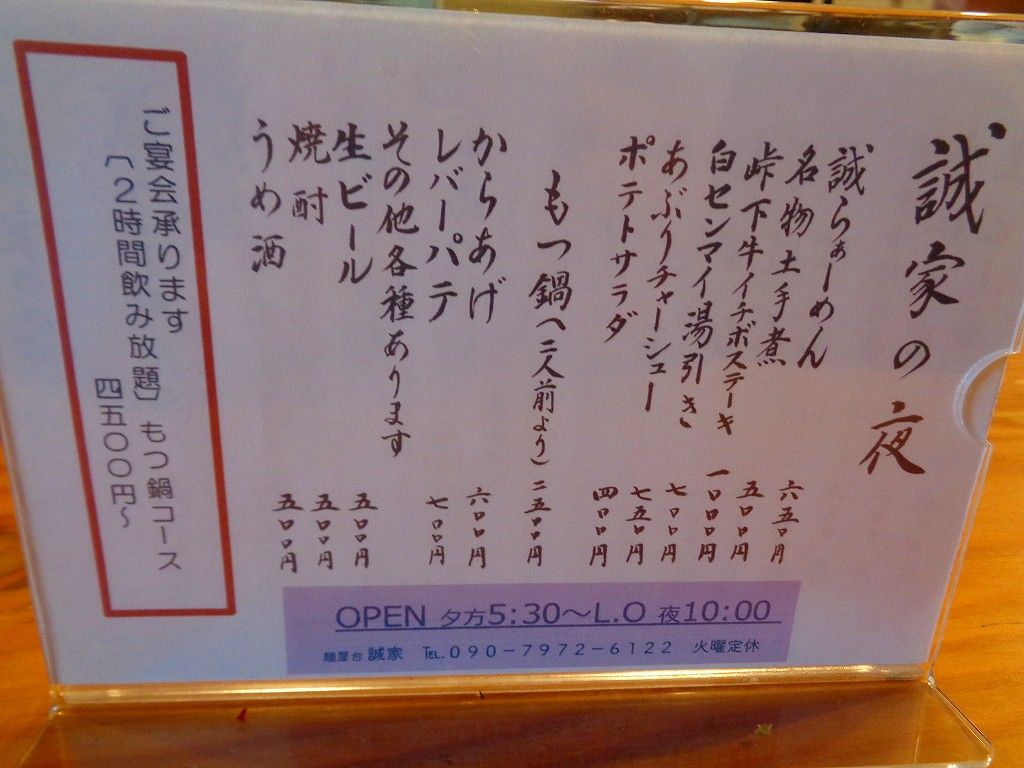 誠家の夜
誠らぁーめん 六五〇円
名物土手煮 五〇〇円
峠下牛イチボステーキ 一〇〇〇円
白センマイ湯引き 七〇〇円
あぶりチャーシュー 七五〇円
ポテトサラダ 四〇〇円
もつ鍋(二人前より) 二五〇〇円
からあげ 六〇〇円
レバーパテ 七〇〇円
その他各種あります
生ビール 五〇〇円
焼酎 五〇〇円
うめ酒 五〇〇円
ご宴会承ります
〔2時間飲み放題〕もつ鍋コース
四五〇〇円~
OPEN 夕方5:30~L.O 夜10:00
麺屋台 誠家 TEL.090-7972-6122 火曜定休